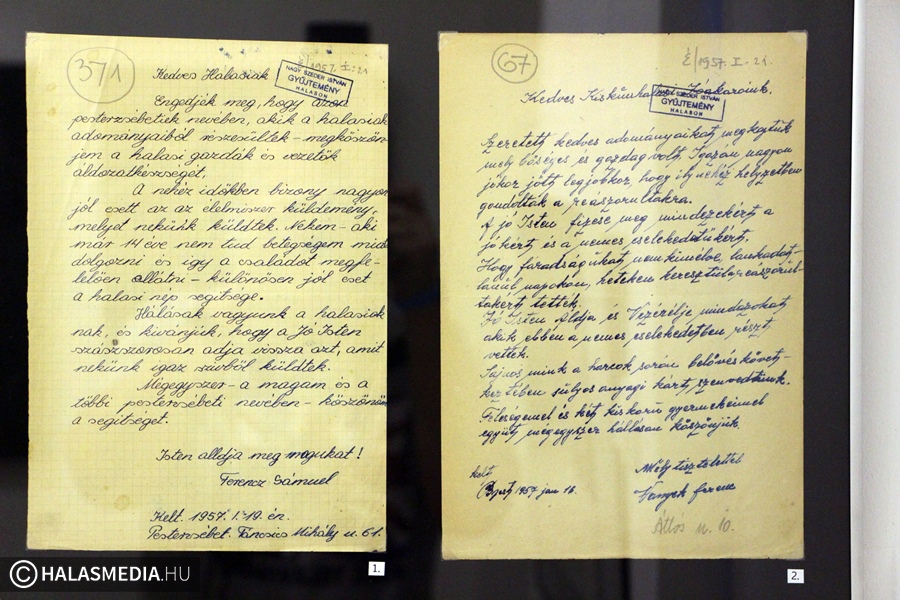 371
É/1957. I. 21
NAGY SZEDER ISTVÁN
GYŰJTEMÉNY
HALASON
Kedves Halasiak
Engedjék meg, hogy azon
pesterzsébetiek nevében, akik a halasiak
adományaiból részesültek - megköszön-
jem a halasi gazdák és vezetők
áldozatkészségét.
A nehéz időkben bizony nagyon
jól esett az az élelmiszer küldemény,
melyet nekünk küldtek. Nekem - aki
már 14 éve nem tud betegségem miatt
dolgozni és így a családot megfe-
lelően ellátni - különösen jól eset
a halasi nép segítsége.
Hálásak vagyunk a halasiak
nak, és kívánjuk, hogy a Jó Isten
százszorosan adja vissza azt, amit
nekünk igaz szívből küldtek.
Mégegyszer - a magam és a
többi pesterzsébeti nevében - köszönöm
a segítséget.
Isten álldja meg magukat!
Ferencz Sámuel
Kelt. 1957. I. 19. én.
Pesterzsébet. Táncsics Mihály u. 61.
1.
67
É/1957. I - 21.
NAGY SZEDER ISTVÁN
GYŰJTEMÉNY
HALASON
Kedves Kiskunhalasi Jóakaróink.
Szeretett kedves adományaikat megkaptuk
mely bőséges és gazdag volt. Igazán nagyon
jókor jött legjobbkor, hogy ily nehéz helyzetben
gondoltak a reászorultakra.
A jó Isten fizesse meg mindezekért a
jókért és a nemes cselekedetükért.
Hogy fáradságukat nem kímélve, lankadat-
lanul napokon, heteken keresztül a rászorul-
takért tették.
Jó Isten Áldja és Vezérelje mindazokat
akik ebben a nemes cselekedetben részt
vettek.
Sajnos mink a harcok során belövés követ-
keztében súlyos anyagi kárt szenvedtünk.
Feleségemel és két kiskorú gyermekeimel
együtt mégegyszer hálásan köszönjük.
Mély tisztelettel
kelt
1957 jan 16.
Ferenc
Átlós u. 10.
2.
© HALASMEDIA.HU